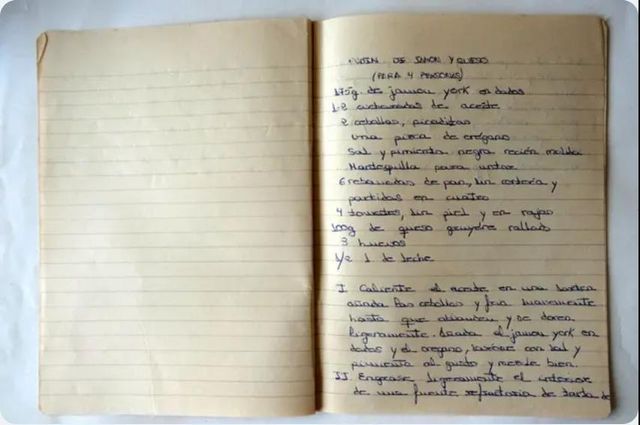 PUDIN DE JAMON Y QUESO
(PARA 4 PERSONAS)
175g. de jamon york en dados
1-2 cucharadas de aceite
2 cebollas, picaditas
una pizca de orégano
Sal y pimienta negra recién molida
Mantequilla para untar
6 rebanadas de pan, sin corteza y
partidas en cuatro
4 tomates, sin piel y en rajas
100g de queso gruyère rallado
3 huevos
1/2 l de leche
I Caliente el aceite en una sartén
añada las cebollas y fria suavemente
hasta que ablanden y se doren
ligeramente. Añada el jamon york en
dados y el oregano, sazone con sal y
pimienta al gusto y mezcle bien.
II. Engrase ligeramente el interior
de una fuente refractaria de tarta de